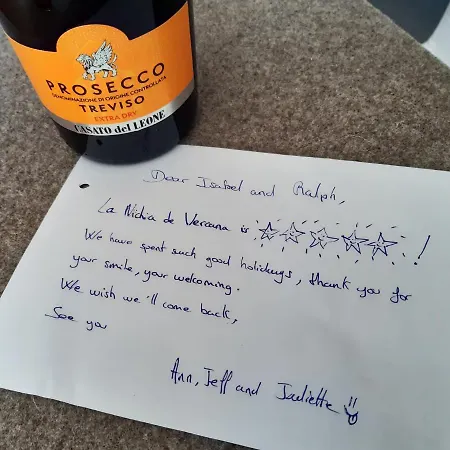 PROSECCO
DENOMINAZIONE DI ORIGINE CONTROLLATA
TREVISO
EXTRA DRY
CASATO del LEONE
Dear Isabel and Ralph,
La Nidia de Vercana is ☆☆☆☆☆!
We have spent such good holidays, thank you for
your smile, your welcoming.
We wish we'll come back,
See you
Ann, Jeff and Juliette